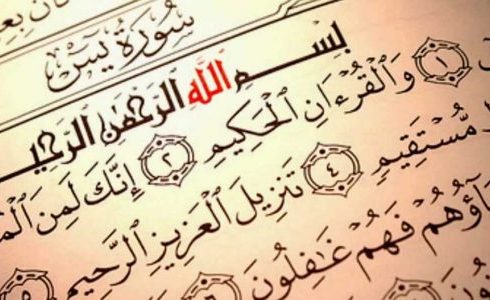 سُورَةُ يسٓ
بِسْمِ ٱللَّهِ ٱلرَّحْمَٰنِ ٱلرَّحِي
١ وَٱلْقُرْءَانِ ٱلْحَكِيمِ ٢ إِنَّكَ لَمِنَ
مُّسْتَقِيمٍ ٤ تَنزِيلَ ٱلْعَزِيزِ ٱلرَّحِيمِ ٥
ؤُهُمْ فَهُمْ غَٰفِلُونَ ٦